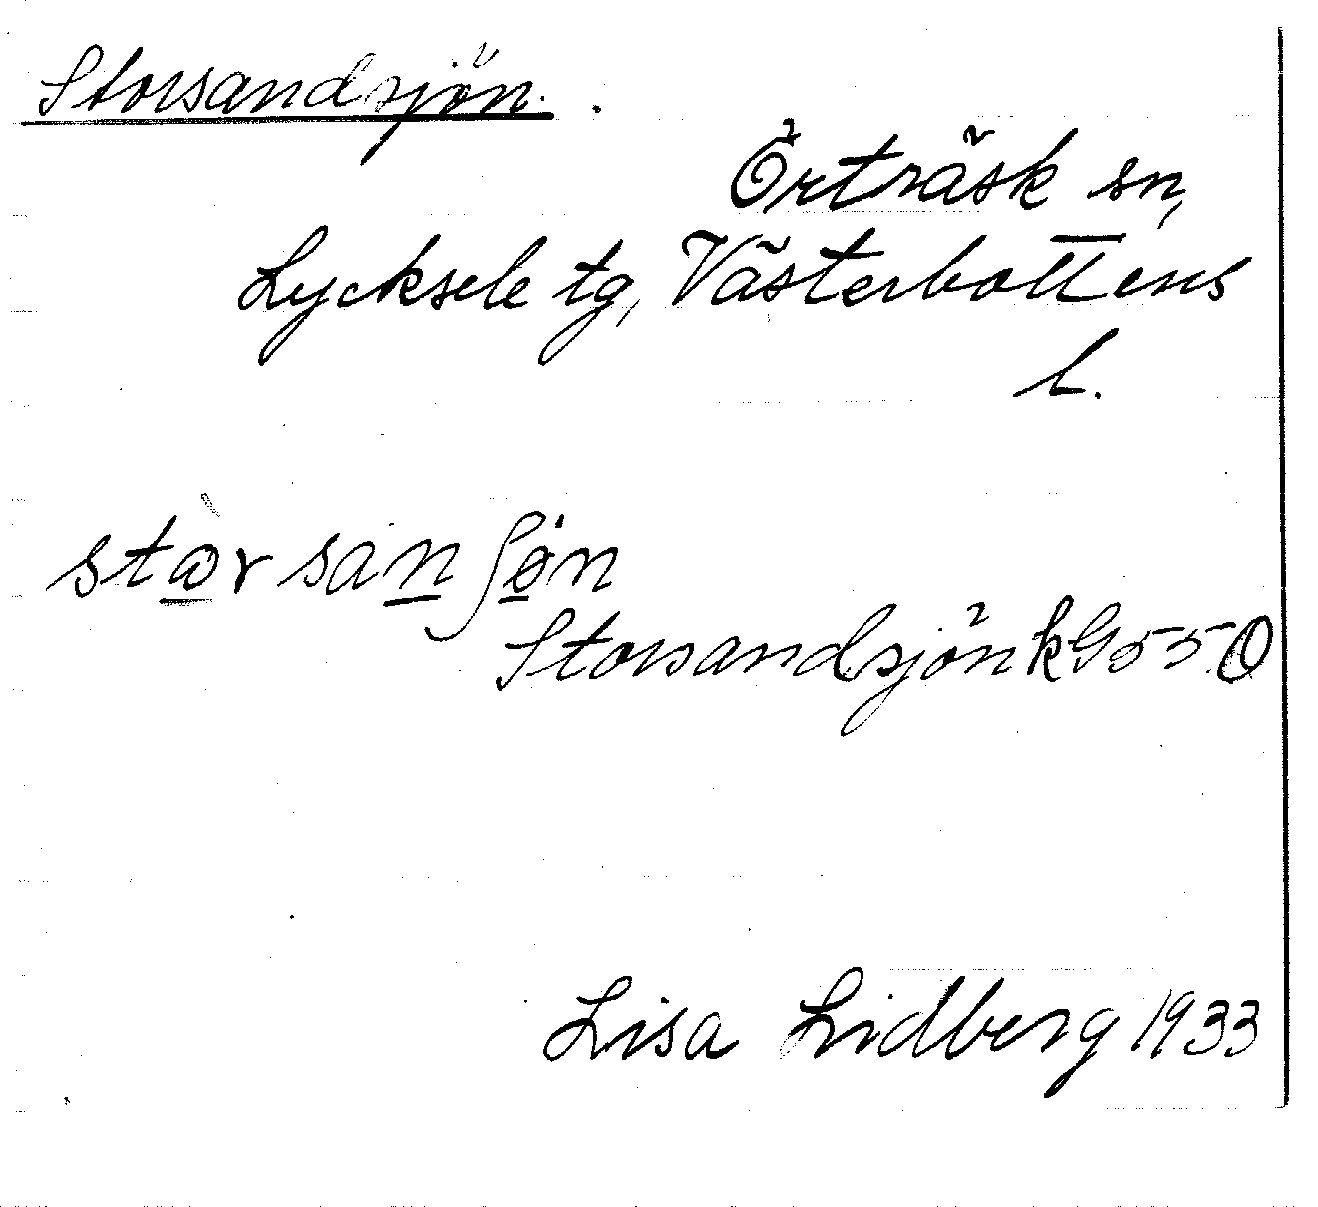 Storsandsjön.
Örträsk sn,
Lycksele tg, Västerbottens
l.
Storsandsjön k G 550
Lisa Lidberg 1933